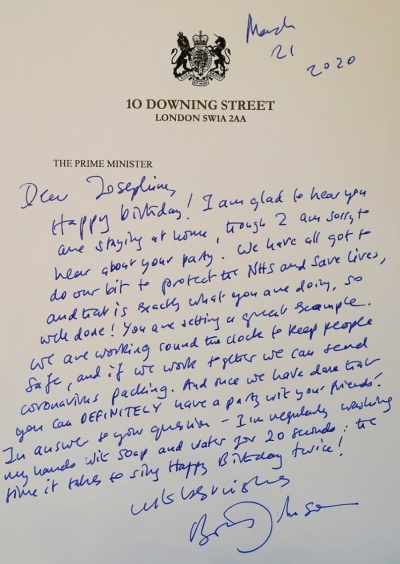 March
21
2020
10 DOWNING STREET
LONDON SW1A 2AA
THE PRIME MINISTER
Dear Josephine,
Happy birthday! I am glad to hear you
are staying at home, though I am sorry to
hear about your party. We have all got to
do our bit to protect the NHS and save lives,
and that is exactly what you are doing, so
well done! You are setting a great example.
We are working round the clock to keep people
safe, and if we work together we can send
coronavirus packing. And once we have done that
you can DEFINITELY have a party with your friends!
In answer to your question - I'm regularly washing
my hands with soap and water for 20 seconds: the
time it takes to sing Happy Birthday twice!
With best wishes
Boris Johnson